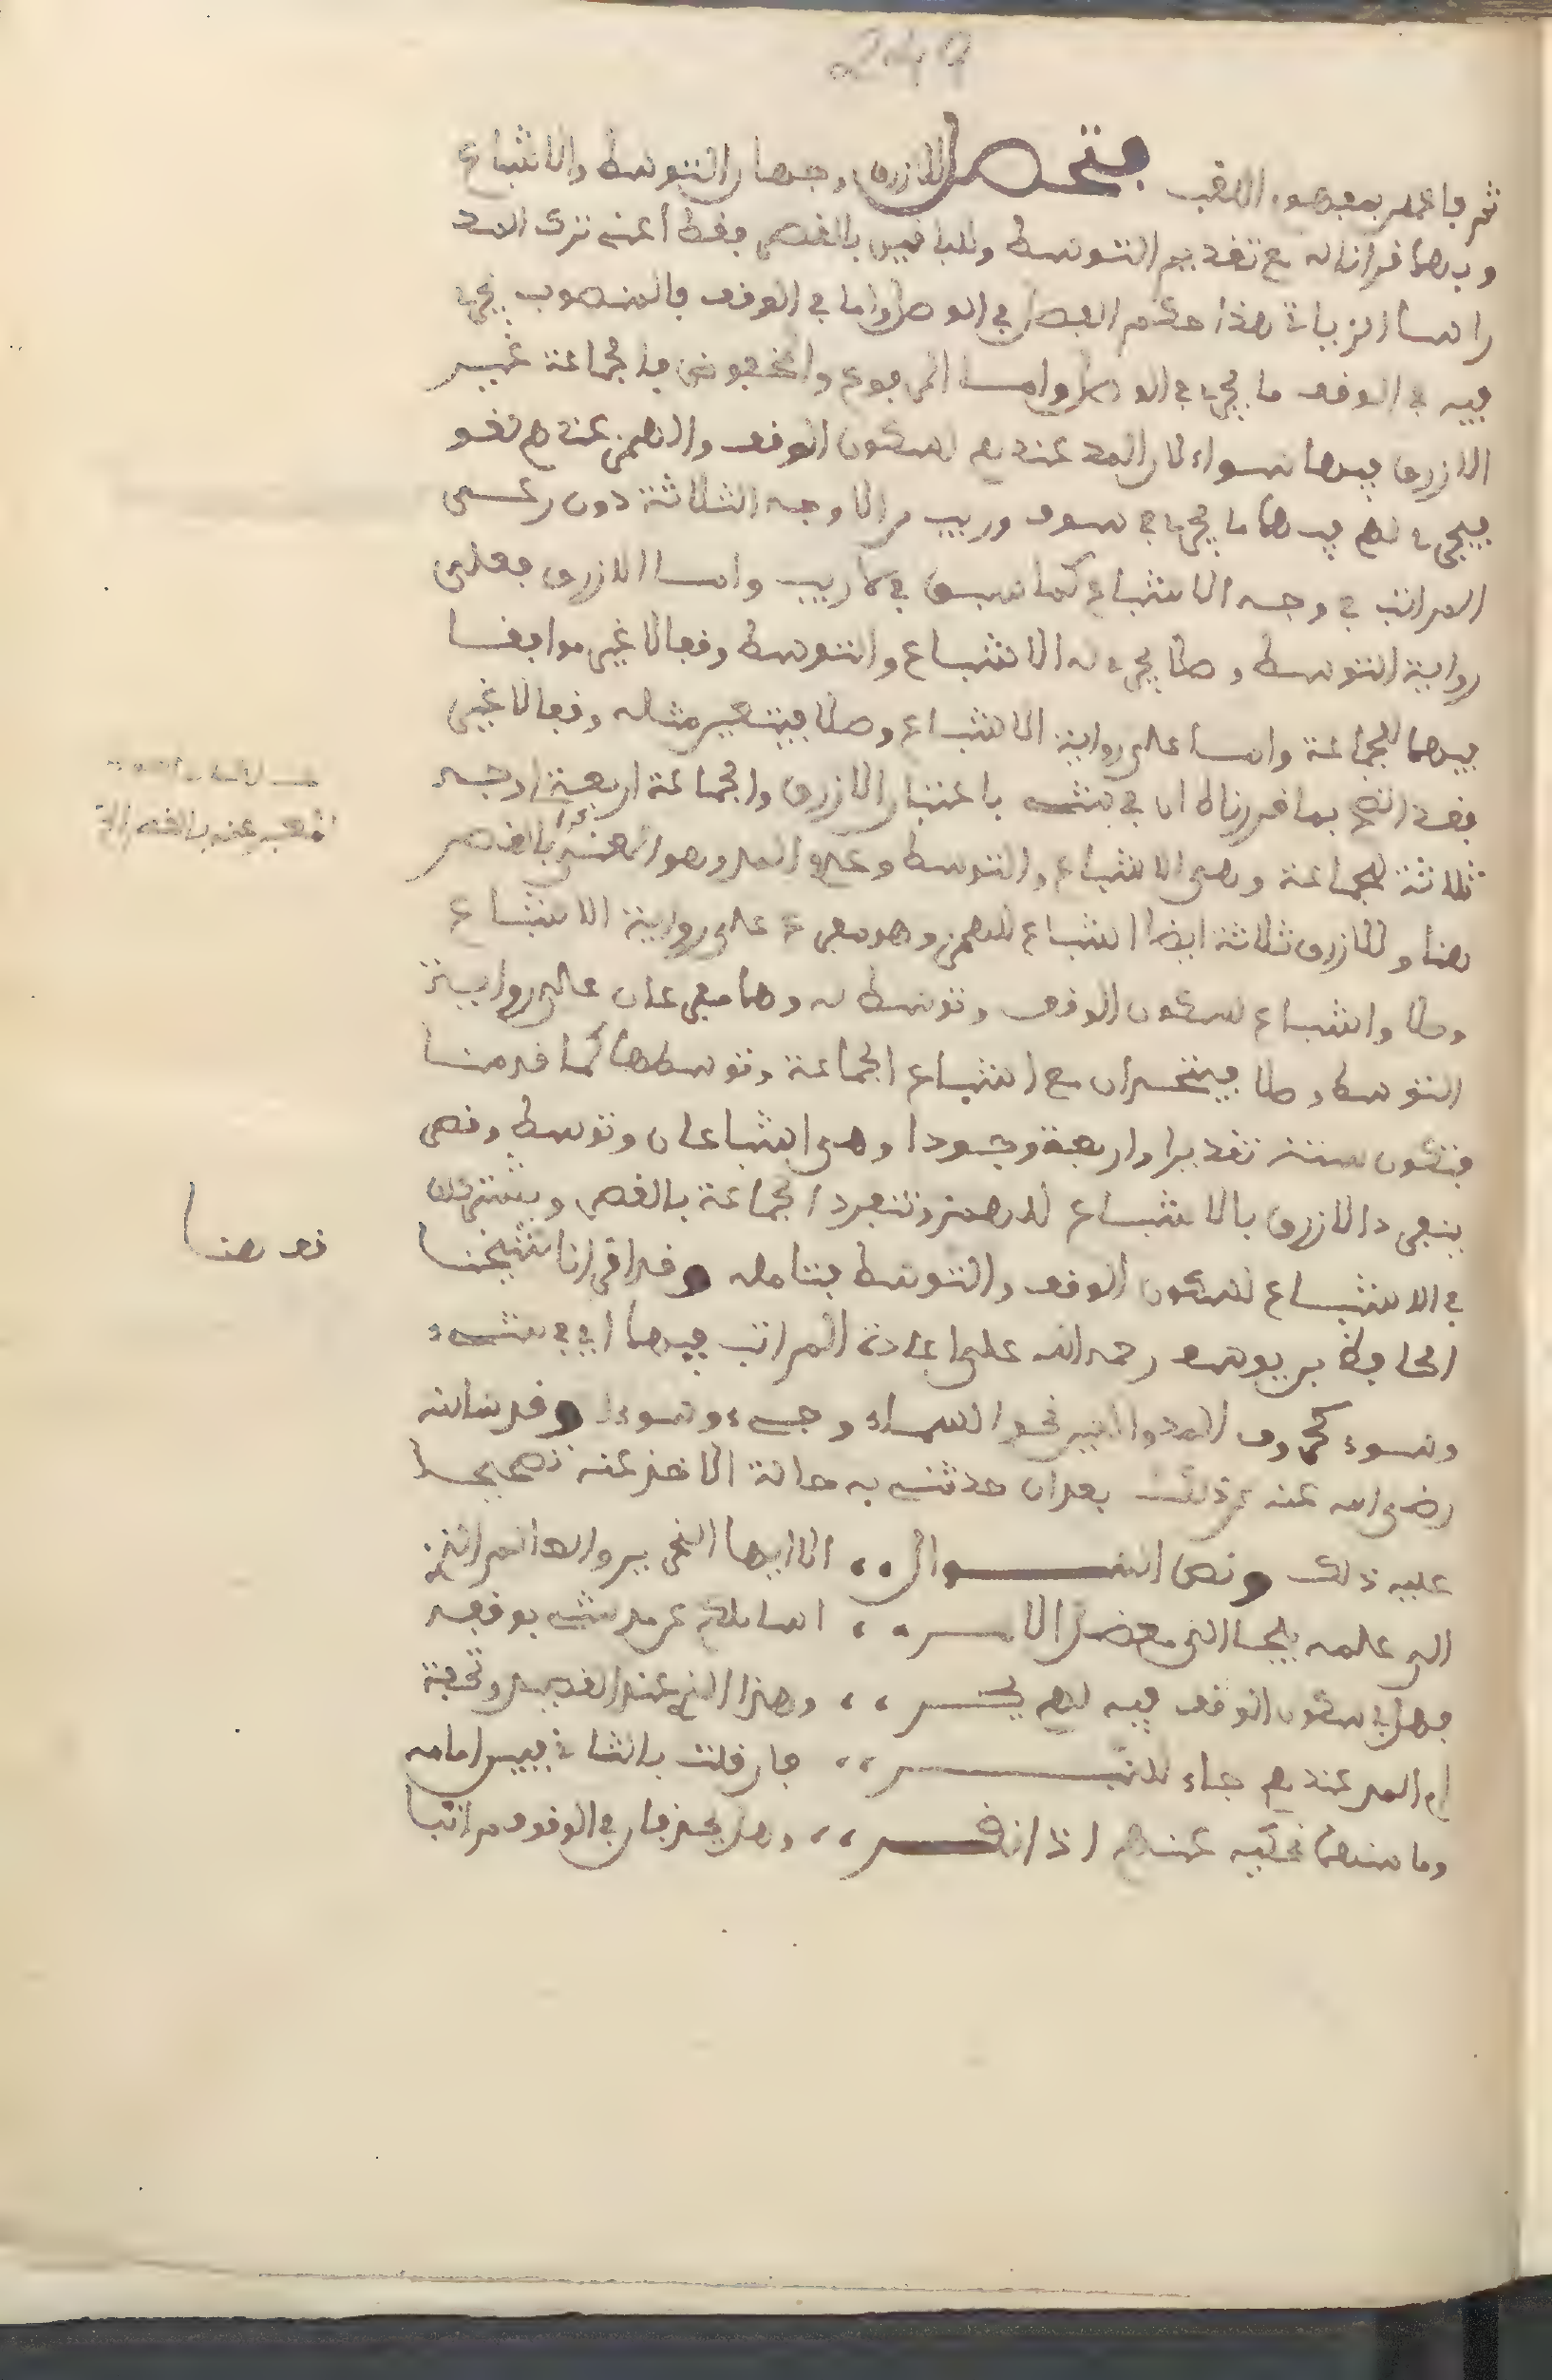 249
ثم فاعلم بمعرفة اللقب فتحصل للازرق وجهان التوسط والاشباع
وبهما قرانا له مع تقديم التوسط وللباقين بالقصر فقط أعني ترك المد
راسا الزيادة هذا حكم الفصل في الوصل واما في الوقف فالمنصوب يجيء
فيه في الوقف ما يجيء في الوصل وامــا المرفوع والمخفوض فالجماعة غيــر
الازرق فيهما ســواء لان المد عندهم لسكون الوقف والهمز عندهم لغو
فيجيء لهم فيهما ما يجيء في سوف وريب من الاوجه الثلاثة دون رعــي
المراتب في وجه الاشباع كما سبق في لا ريب وامــا الازرق فعلى
رواية التوسط وصلا يجيء له الاشباع والتوسط وقفا لا غير موافقــا
فيهما للجماعة وامــا على رواية الاشباع وصلا فيتعين مثله وقفا لا غير
فقد اتضح بما قررناه ان في شــيء باعتبار الازرق والجماعة اربعة اوجــه
ثلاثة للجماعة وهي الاشباع والتوسط وعدم المد وهو المعبر عنه بالقصر
هنا وللازرق ثلاثة ايضا اشباع للهمز وهو مفرع على رواية الاشبــاع
وصلا واشباع لسكون الوقف وتوسط له وهما مفرعان على روايــة
التوسط وصلا فيتحدان مع اشباع الجماعة وتوسطها كما قدمنــا
فتكون ستة تقديرا واربعة وجــودا وهي اشباعان وتوسط وقصر
ينفرد الازرق بالاشباع للهمز وتنفرد الجماعة بالقصر ويشتركان
في الاشبــاع لسكون الوقف والتوسط فتامله وقد اقرانا شيخنــا
قف هنــا
الحافظ بن يوسف رحمه الله على اعادة المراتب فيهما اي في شــيء
وســوء كحروف المد واللين نحو السمــاء وجــيء وســوءا وقد سالته
رضي الله عنه عن ذلك بعد ان حدثني به حالة الاخذ عنه تصحيحــا
عليه ذلك ونص الســــوال ،، الا ايها النحرير والعالم الذي
الى علمه يلجــا لدى معضل الامــر ،، اسائلكم عن مد شيء بوقفه
فهل في سكون الوقف فيه لهم يجــر ،، وهذا الذي عند القصيد وتحفة
ام المد عندهم جاء للنبــــر ،، فان قلت بالثاني فبين امامه
وما منهما تحكيه عندهم اذا انفــر ،، وهل يحذفان في الوقوف مراتبا